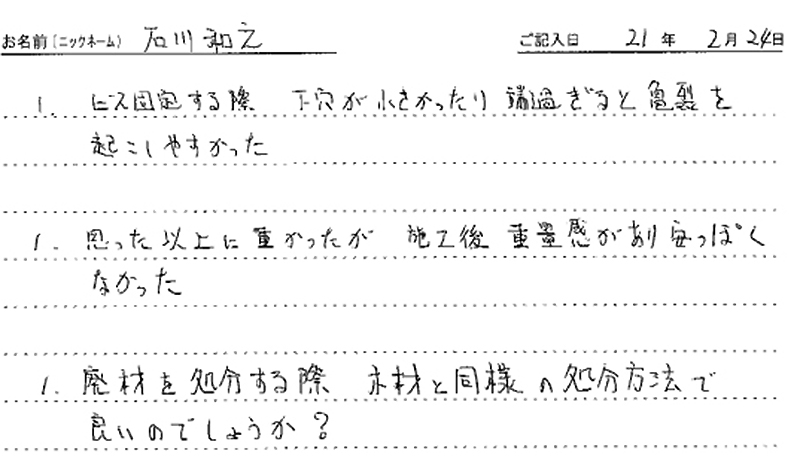 お名前（ニックネーム） 石川和之 ご記入日 21年 2月24日
1. ビス固定する際 下穴が小さかったり 端過ぎると亀裂を
起こしやすかった
1. 思った以上に重かったが 施工後 重量感があり安っぽく
なかった
1. 廃材を処分する際 木材と同様の処分方法で
良いのでしょうか？